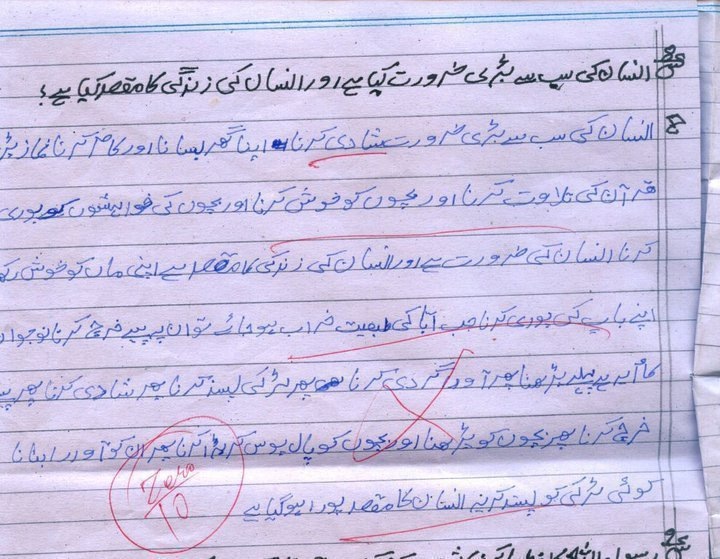 س انسان کی سب سے بڑی ضرورت کیا ہے اور انسان کی زندگی کا مقصد کیا ہے؟
ج انسان کی سب سے بڑی ضرورت شادی کرنا اپنا گھر بسانا اور کام کرنا نماز پڑ
قرآن کی تلاوت کرنا اور بچوں کو خوش کرنا اور بچوں کی خواہشوں کو پوری
کرنا انسان کی ضرورت ہے اور انسان کی زندگی کا مقصد ہے اپنی ماں کو خوش رکھ
اپنے باپ کی پوری کرنا جب آبا کی طبعیت خراب ہو جائے تو ان پر پیسے خرچ کرنا نوجوان
کا پہلے پڑھنا پھر آوارگردی کرنا پھر لڑکی پسند کرنا پھر شادی کرنا پھر پیسے
خرچ کرنا پھر بچوں کو پڑھنا اور بچوں کو پال پوس کر بڑا کرنا پھر ان کو آوارا بنانا
کوئی لڑکی کو پسند کرنے انسان کا مقصد پورا ہو گیا ہے
Zero
10